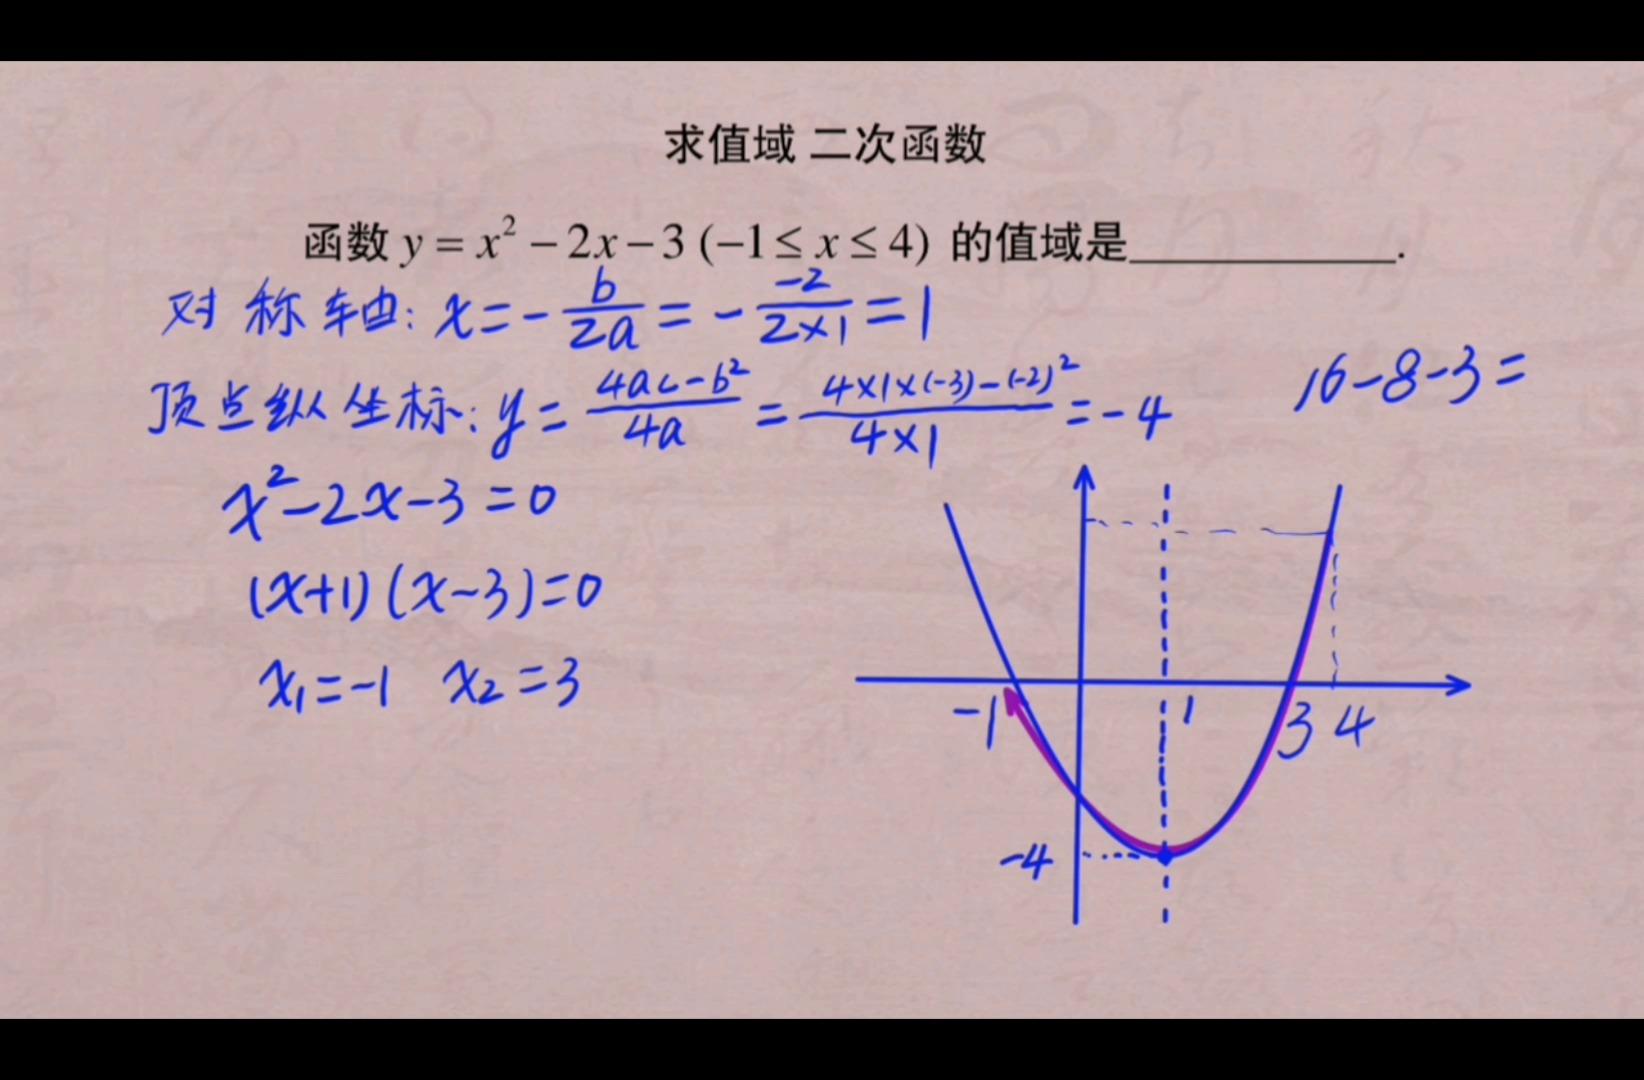 求值域 二次函数
函数 y = x² − 2x − 3 (−1 ≤ x ≤ 4) 的值域是__________.
对称轴: x = -b/2a = - -2/2×1 = 1
顶点纵坐标: y = 4ac-b²/4a = 4×1×(-3)-(-2)²/4×1 = -4
16-8-3=
x²-2x-3=0
(x+1)(x-3)=0
x₁=-1 x₂=3
-1 1 3 4
-4